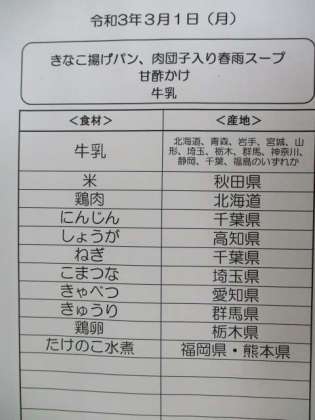 令和3年3月1日（月）
きなこ揚げパン、肉団子入り春雨スープ
甘酢かけ
牛乳
＜食材＞ ＜産地＞
牛乳 北海道、青森、岩手、宮城、山
形、埼玉、栃木、群馬、神奈川、
静岡、千葉、福島のいずれか
米 秋田県
鶏肉 北海道
にんじん 千葉県
しょうが 高知県
ねぎ 千葉県
こまつな 埼玉県
きゃべつ 愛知県
きゅうり 群馬県
鶏卵 栃木県
たけのこ水煮 福岡県・熊本県